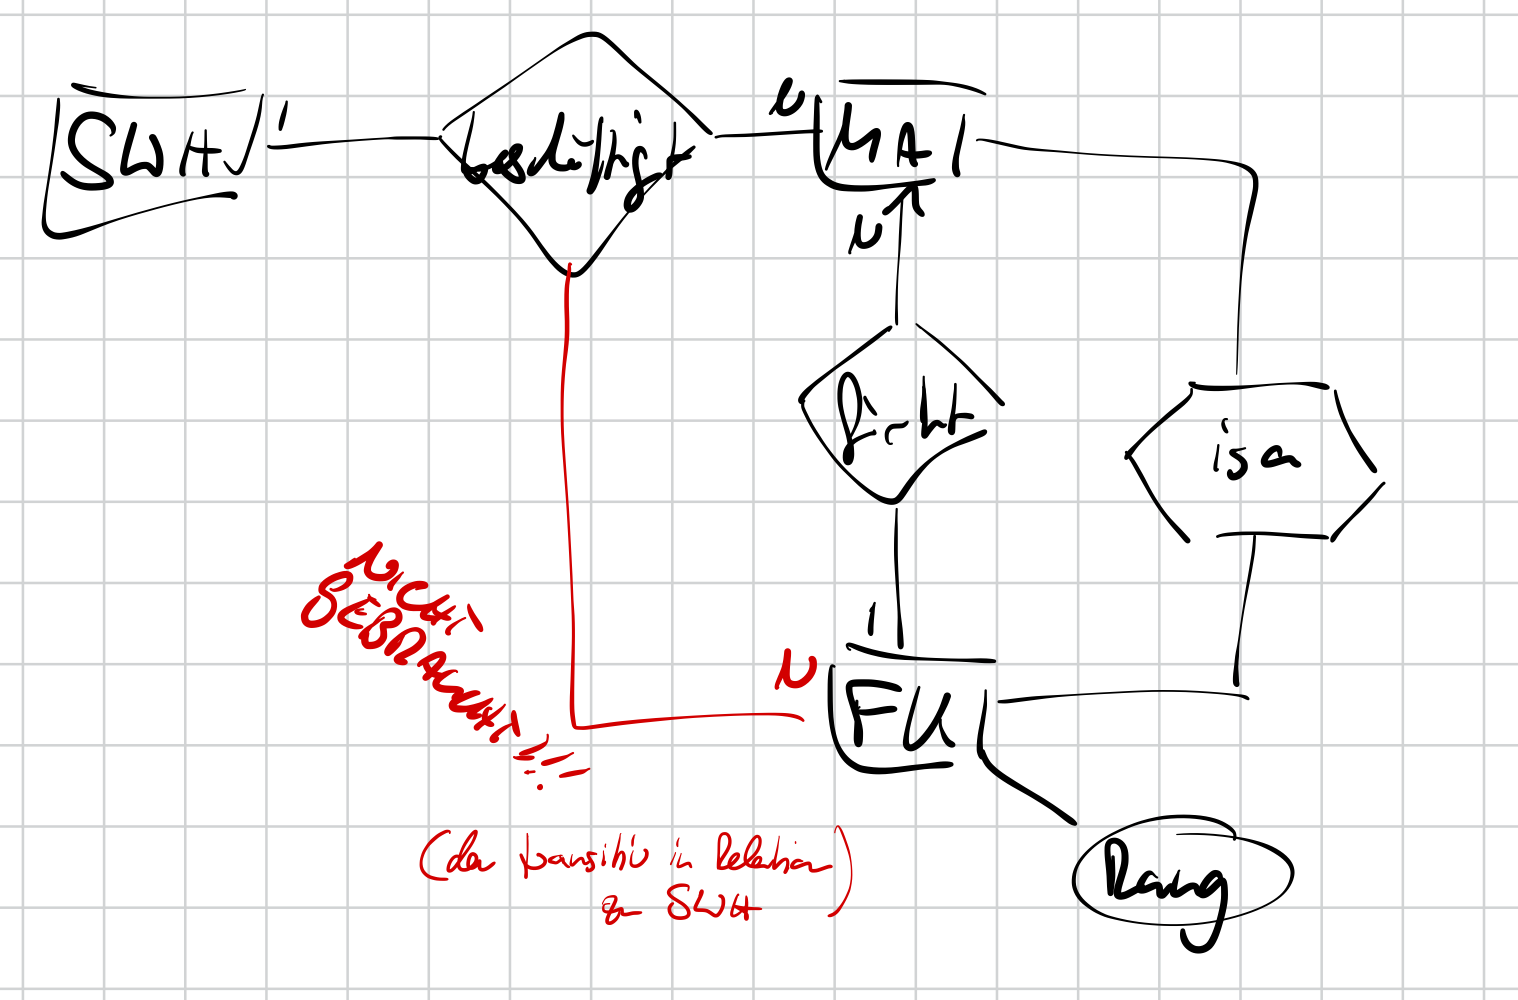 SWH
1
beschäftigt
N
MA
N
führt
isa
1
NICHT
GEBRAUCHT!!!
N
FK
Rang
(da transitiv in Relation
zu SWH)